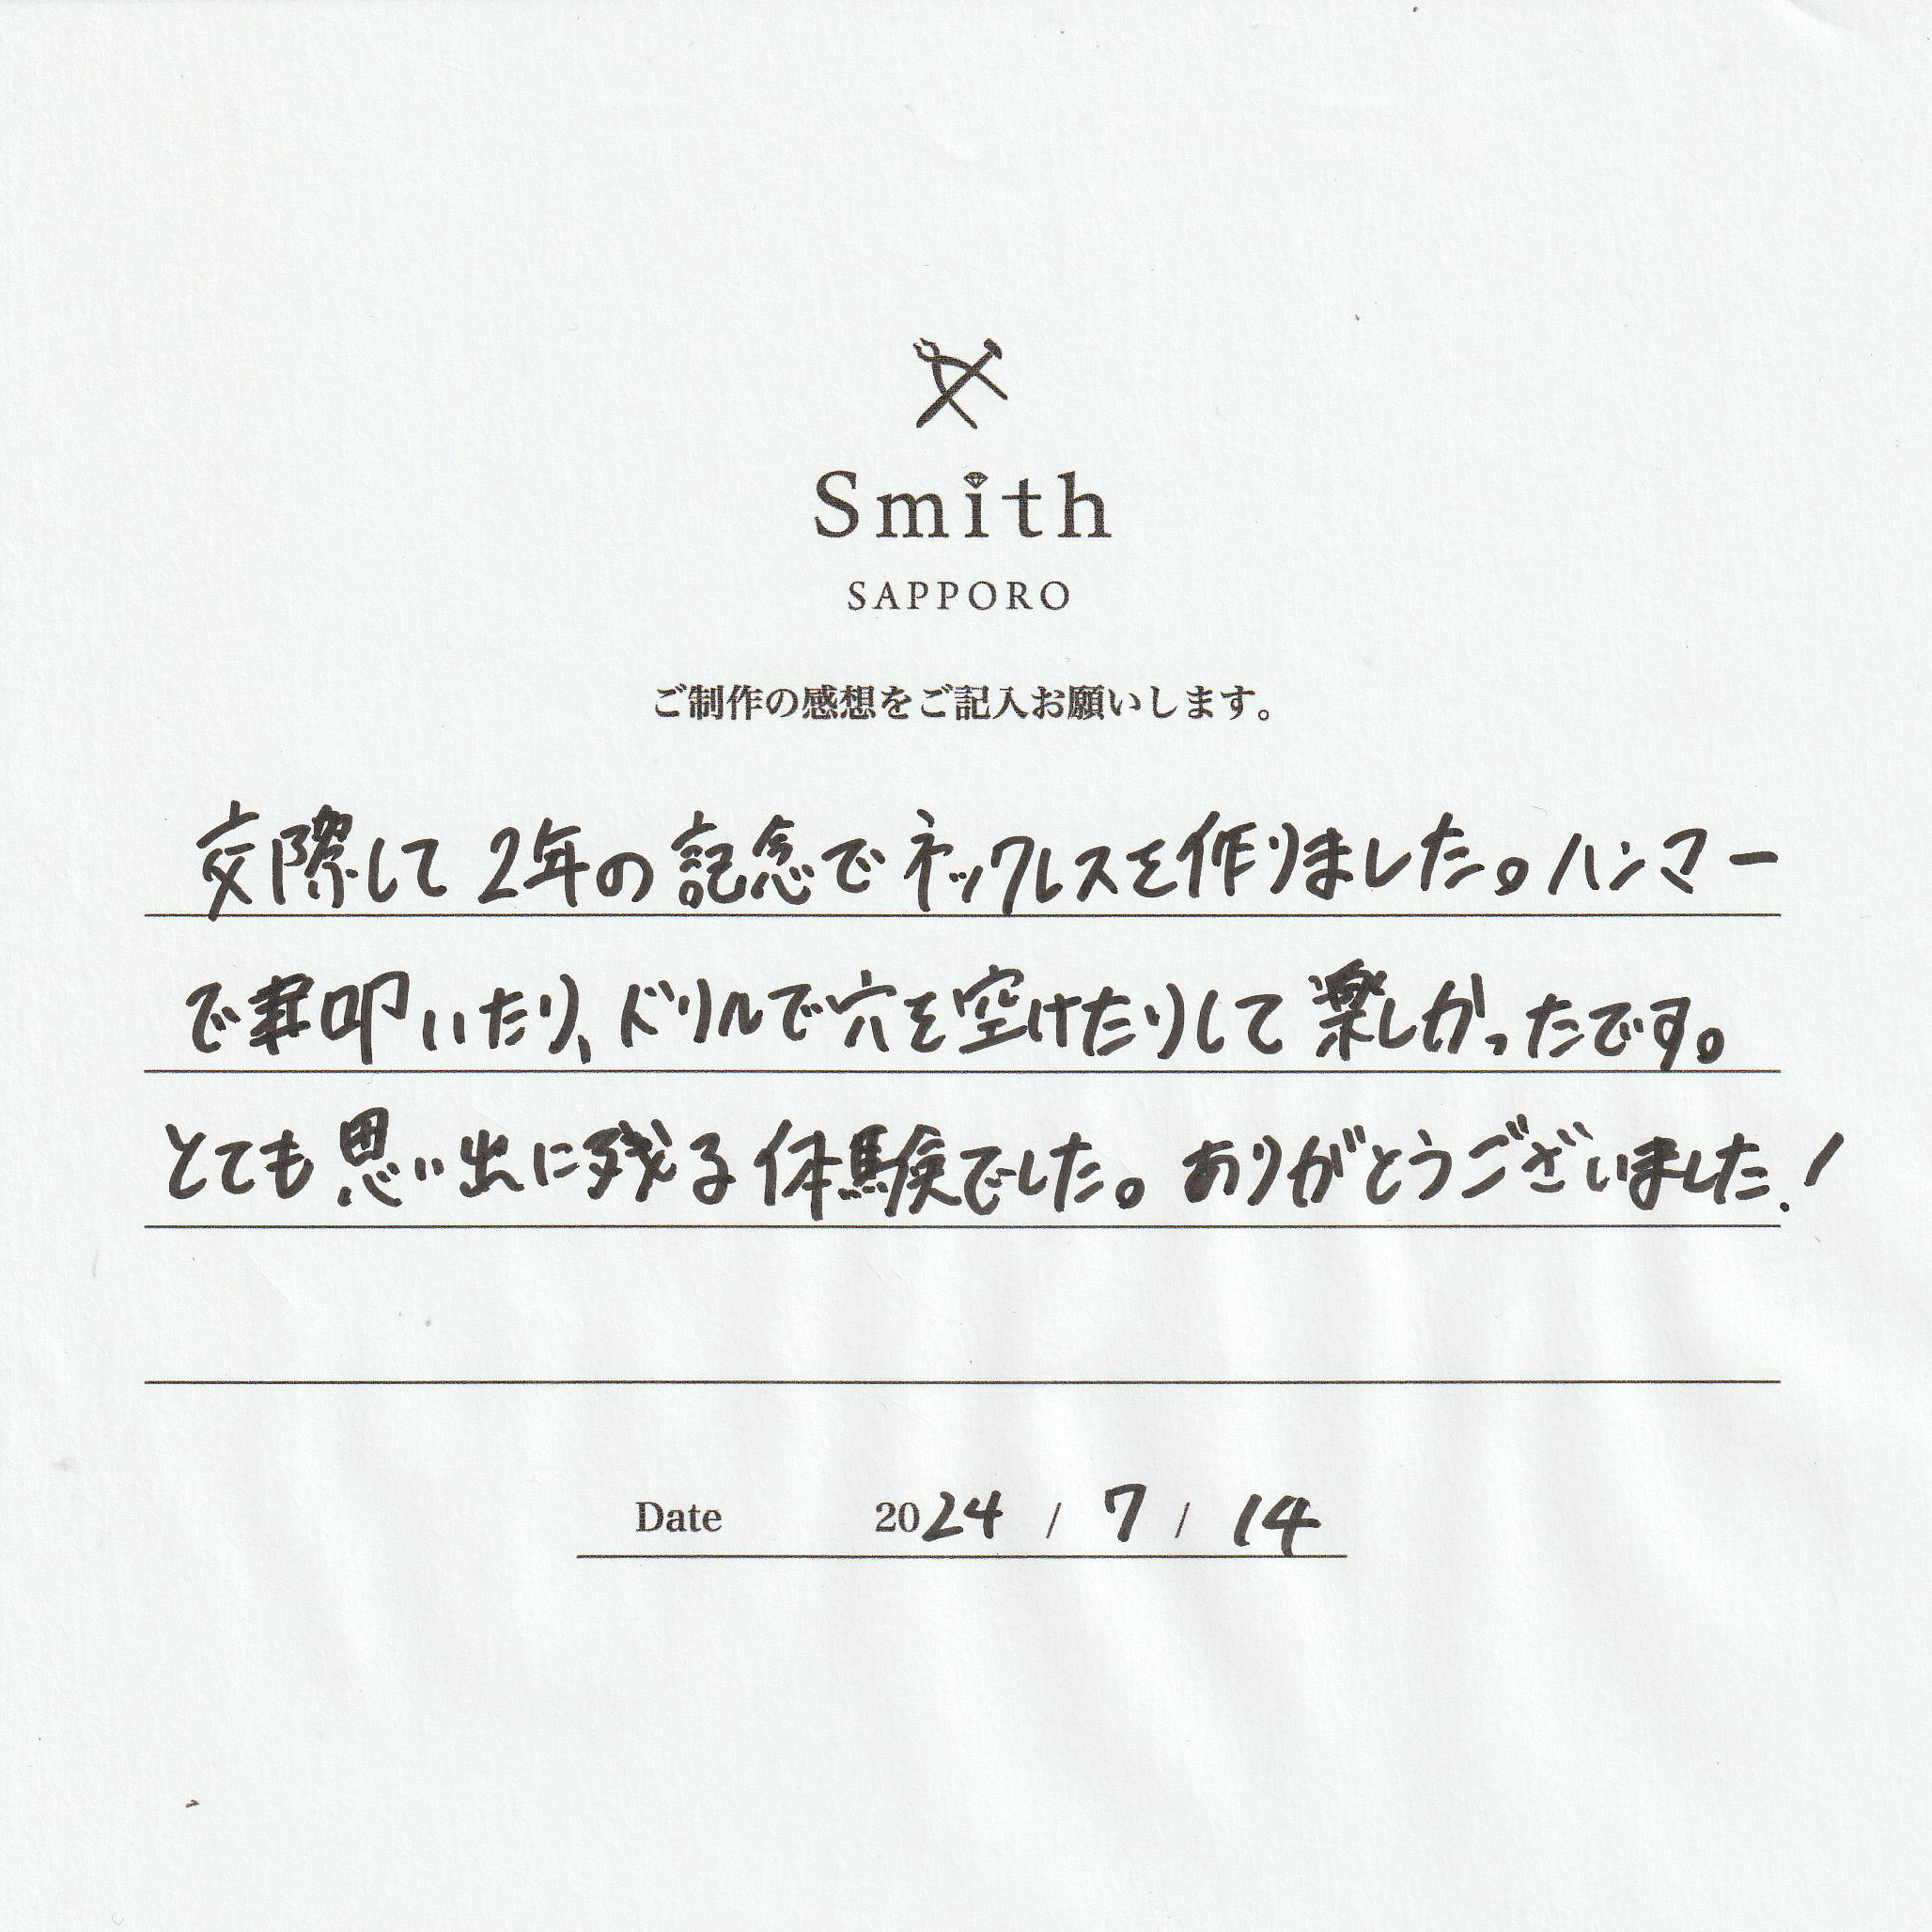 Smith
SAPPORO
ご制作の感想をご記入お願いします。
交際して2年の記念でネックレスを作りました。ハンマー
で叩いたり、ドリルで穴を空けたりして楽しかったです。
とても思い出に残る体験でした。ありがとうございました!
Date 2024 / 7 / 14